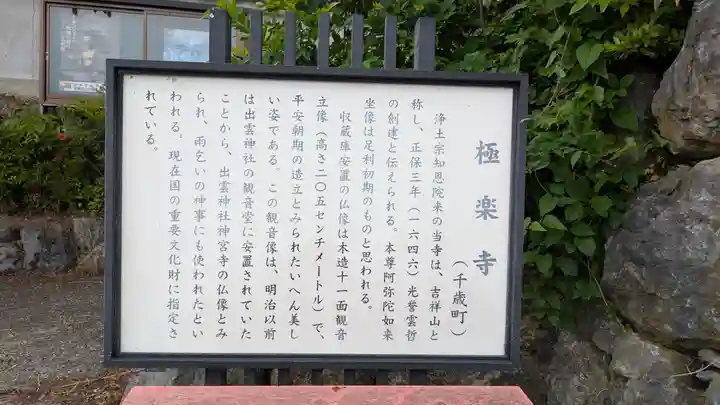 極楽寺
(千歳町)
浄土宗知恩院末の当寺は、吉祥山と
称し、正保三年(一六四六)光誉雲哲
の創建と伝えられる。本尊阿弥陀如来
坐像は足利初期のものと思われる。
収蔵庫安置の仏像は木造十一面観音
立像(高さ二〇五センチメートル)で、
平安朝期の造立とみられたいへん美し
い姿である。この観音像は、明治以前
は出雲神社の観音堂に安置されていた
ことから、出雲神社神宮寺の仏像とみ
られ、雨乞いの神事にも使われたとい
われる。現在国の重要文化財に指定さ
れている。